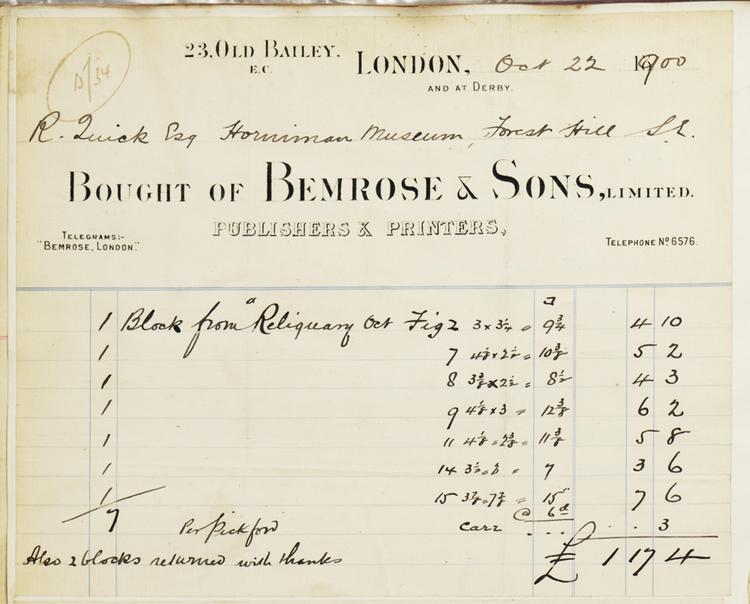 10/34
23, OLD BAILEY.
E.C.
LONDON, Oct 22 1900
AND AT DERBY.
R. Quick Esq Horniman Museum, Forest Hill S.E.
BOUGHT OF BEMROSE & SONS, LIMITED.
PUBLISHERS & PRINTERS,
TELEGRAMS:-
"BEMROSE, LONDON."
TELEPHONE Nº 6576.
1 Block from "Reliquary Oct Fig 2 3 x 3¼ = 9¾ 4 10
1 7 4⅛ x 2½ = 10⅜ 5 2
1 8 3⅜ x 2½ = 8½ 4 3
1 9 4⅛ x 3 = 12⅜ 6 2
1 11 4⅛ = = 11⅜ 5 8
1 14 3½ = 2 = 7 3 6
1 15 = 15 7 6
7 @ 6d
Per Pickford carr ... .. 3
Also 2 blocks returned with thanks £ 1 17 4